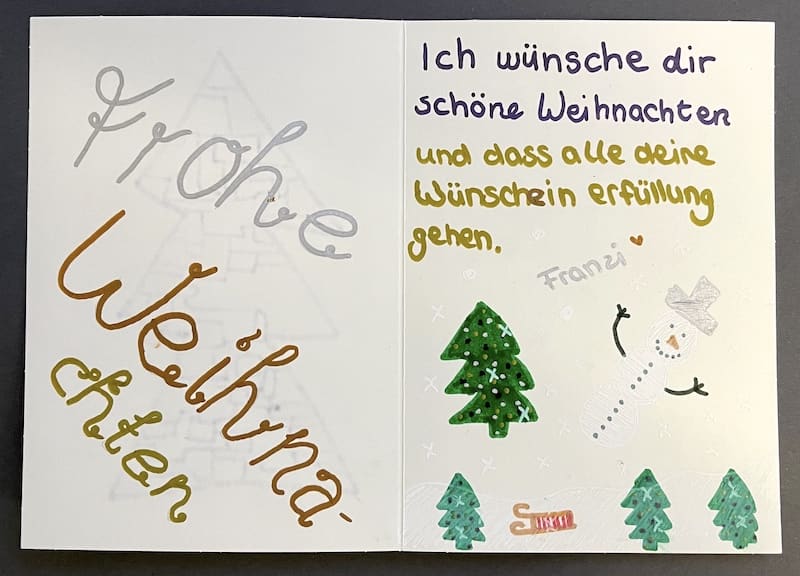 Frohe
Weihna-
chten
Ich wünsche dir
schöne Weihnachten
und dass alle deine
Wünschein erfüllung
gehen.
Franzi